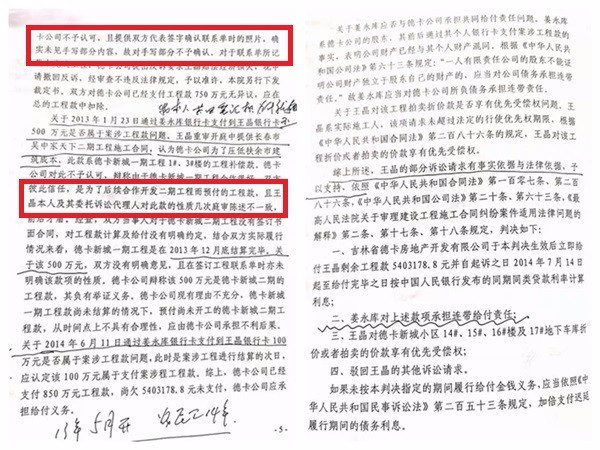 卡公司不予认可，且提供双方代表签字确认联系单时的照片，确
实未见手写部分内容，故对手写部分不予确认。对于联系单所记
申请撤回反诉，经审查不违反法律规定，予以准许，本院另行下发
裁定书。双方对德卡公司已经支付工程款750万元无异议，应在
总的工程款中扣除。
关于2013年1月23日通过姜永库银行卡支付到王晶银行卡
500万元是否属于案涉工程款问题，王晶重审开庭中提供长春市
吴中家天下二期工程施工合同，认为德卡公司为了压低扶余市建
筑成本，此款系德卡新城一期工程1#、3#楼的工程补偿款。德卡
公司对此不予认可，辩称由于德卡新城一期工程
彼此信任，是为了后续合作开发二期工程而预付的工程款，且王
晶本人及其委托诉讼代理人对此款的性质几次庭审陈述不一致，
面合同，对工程款计算及给付没有明确约定，结合双方实际履行
情况来看，德卡新城一期工程是在2013年12月底结算完毕。关
于该500万元，双方没有明确意见，且在签订工程联系单时亦未
明确该款项的性质。德卡公司辩称该500万元是德卡新城二期的
工程款，其负有举证义务。德卡公司现有理由不充分，德卡一期
工程款尚未结算的情况下，预付尚未开工的德卡新城二期工程
款，从时间点上不具有合理性，应由德卡公司承担不利后果。
关于2014年6月11日通过姜永库银行卡支付到王晶银行卡100
万元是否属于案涉工程款问题，此时是案涉工程进行结算的次日，
应认定该100万属于支付案涉工程款。综上，德卡公司已经支
付850万元工程款，尚欠5403178.8元未支付，德卡公司应承
担给付义务。
13年5月开
-5-
关于姜永库应否与德卡公司承担共同给付责任问题，姜永库
系德卡公司的股东，其前后通过其个人银行卡支付案涉工程款的
事实，表明公司财产已经与其个人财产混同。根据《中华人民共
和国公司法》第六十三条规定："一人有限责任公司的股东不能证
明公司财产独立于股东自己的财产的，应当对公司债务承担连带
责任。"故姜永库应当对德卡公司债务承担连带给付责任。
关于王晶对工程拍卖折价款是否享有优先受偿权问题，王晶
系实际施工人，该项请求未超过法定的行使权期限，根据《中华
人民共和国合同法》第二百八十六条的规定，王晶对该工程
折价或拍卖价款享有优先受偿权。
综上所述，王晶的部分诉讼请求有事实依据与法律依据，予
以支持，依照《中华人民共和国合同法》第一百零七条、第二百
八十六条、《中华人民共和国公司法》第六十三条，《最高人
民法院关于审理建设工程施工合同纠纷案件适用法律问题的
解释》第二条、第十七条、第十八条规定，判决如下：
一、吉林省德卡房地产开发有限公司于本判决生效后立即给
付王晶剩余工程款5403178.8元并自起诉之日2014年7月14日
起至给付完毕之日按中国人民银行发布的同期同类贷款利率计算
利息；
二、姜永库对上述款项承担连带给付责任；
三、王晶对德卡新城小区14#、15#、16#楼及17#地下车库折
价或者拍卖的价款享有优先受偿权；
四、驳回王晶的其他诉讼请求。
如果未按本判决指定的期间履行给付金钱义务，应当依照《中
华人民共和国民事诉讼法》第二百五十三条规定，加倍支付迟延
履行期间的债务利息。